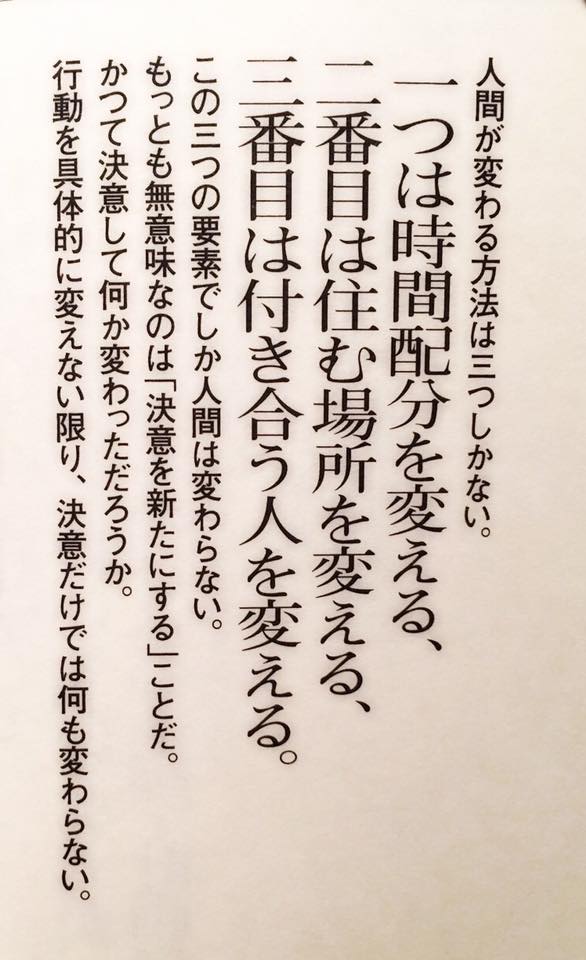 人間が変わる方法は三つしかない。
一つは時間配分を変える、
二番目は住む場所を変える、
三番目は付き合う人を変える。
この三つの要素でしか人間は変わらない。
もっとも無意味なのは「決意を新たにする」ことだ。
かつて決意して何か変わっただろうか。
行動を具体的に変えない限り、決意だけでは何も変わらない。